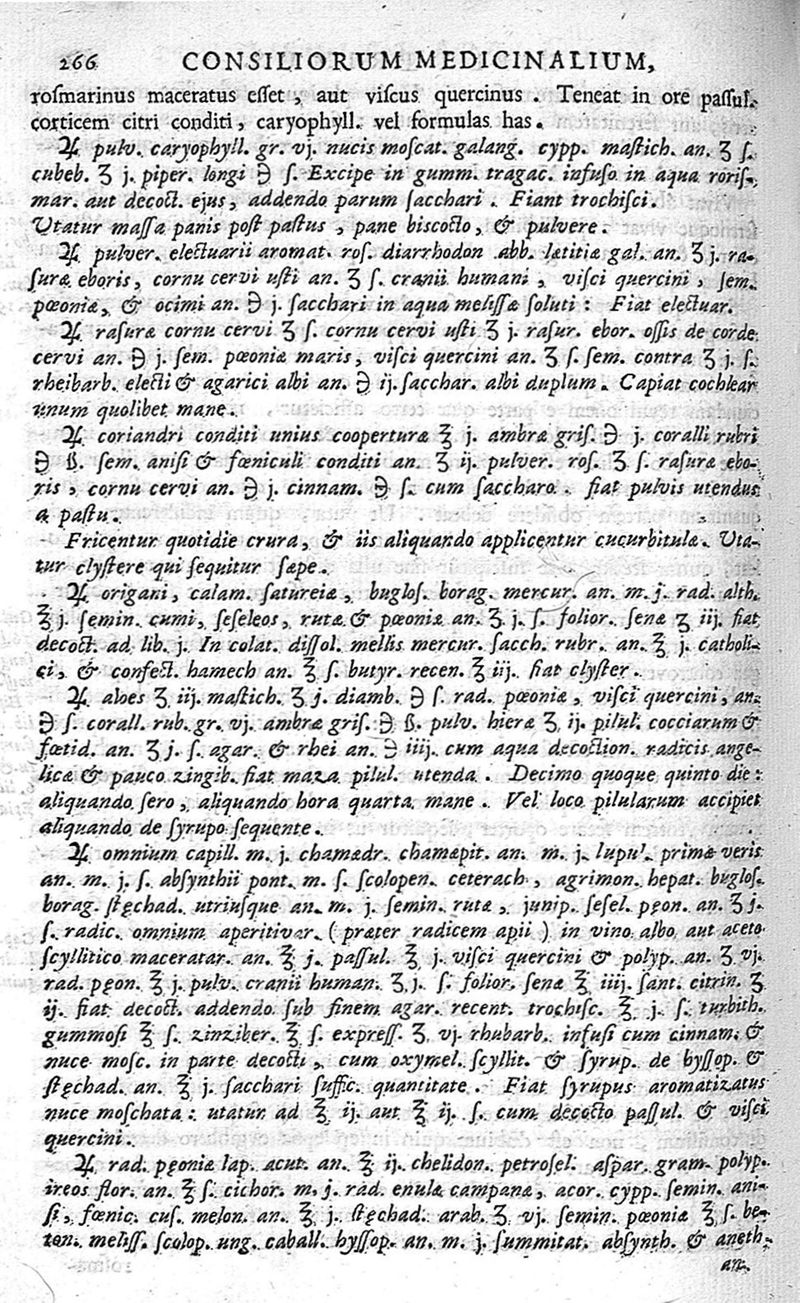 266 CONSILIORUM MEDICINALIUM,
rosmarinus maceratus esset, aut viscus quercinus. Teneat in ore passul.
corticem citri conditi, caryophyll. vel formulas has.
♃ pulv. caryophyll. gr. vj. nucis moscat. galang. cypp. mastich. an. ʒ ſ.
cubeb. ʒ j. piper. longi ℈ ſ. Excipe in gumm. tragac. infuso in aqua roris-
mar. aut decoct. ejus, addendo parum sacchari. Fiant trochisci.
Utatur massa panis post pastus, pane biscocto, & pulvere.
♃ pulver. electuarii aromat. ros. diarrhodon abb. lætitiæ gal. an. ʒ j. ra-
suræ eboris, cornu cervi usti an. ʒ ſ. cranii humani, visci quercini, sem.
pœoniæ, & ocimi an. ℈ j. sacchari in aqua melissæ soluti: Fiat electuar.
♃ rasuræ cornu cervi ʒ ſ. cornu cervi usti ʒ j. rasur. ebor. ossis de corde
cervi an. ℈ j. sem. pœoniæ maris, visci quercini an. ʒ ſ. sem. contra ʒ j. ſ.
rheibarb. electi & agarici albi an. ℈ ij. sacchar. albi duplum. Capiat cochlear
unum quolibet mane.
♃ coriandri conditi unius cooperturæ ℥ j. ambræ gris. ℈ j. coralli rubri
℈ ß. sem. anisi & fœniculi conditi an. ʒ ij. pulver. ros. ʒ ſ. rasuræ ebo-
ris, cornu cervi an. ℈ j. cinnam. ℈ ſ. cum saccharo. fiat pulvis utendus
a pastu.
Fricentur quotidie crura, & iis aliquando applicentur cucurbitulæ. Uta-
tur clystere qui sequitur sæpe.
♃ origani, calam. satureiæ, buglos. borag. mercur. an. m. j. rad. alth.
℥ j. semin. cumi, seseleos, rutæ & pœoniæ an. ʒ. j. ſ. folior. senæ ʒ iij. fiat
decoct. ad lib. j. In colat. dissol. mellis mercur. sacch. rubr. an. ℥ j. catholi-
ci, & confect. hamech an. ℥ ſ. butyr. recen. ℥ iij. fiat clyster.
♃ aloes ʒ iij. mastich. ʒ j. diamb. ℈ ſ. rad. pœoniæ, visci quercini, an.
℈ ſ. corall. rub. gr. vj. ambræ gris. ℈ ß. pulv. hieræ ʒ. ij. pilul. cocciarum &
fœtid. an. ʒ j. ſ. agar. & rhei an. ℈ iiij. cum aqua decoction. radicis ange-
licæ & pauco zingib. fiat maza pilul. utenda. Decimo quoque quinto die:
aliquando sero, aliquando hora quarta mane. Vel loco pilularum accipiet
aliquando de syrupo sequente.
♃ omnium capill. m. j. chamædr. chamæpit. an. m. j. lupul. primæ veris
an. m. j. ſ. absynthii pont. m. ſ. scolopen. ceterach, agrimon. hepat. buglos.
borag. stęchad. utriusque an. m. j. semin. rutæ, junip. sesel. pęon. an. ʒ j.
ſ. radic. omnium aperitivar. (præter radicem apii) in vino albo aut aceto
scyllitico maceratar. an. ℥ j. passul. ℥ j. visci quercini & polyp. an. ʒ vj.
rad. pęon. ℥ j. pulv. cranii human. ʒ j. ſ. folior. senæ ℥ iiij. sant. citrin. ʒ
ij. fiat decoct. addendo sub finem agar. recent. trochisc. ℥ j. ſ. turbith.
gummosi ℥ ſ. zinziber. ℥ ſ. express. ʒ vj. rhubarb. infusi cum cinnam. &
nuce mosc. in parte decocti, cum oxymel. scyllit. & syrup. de hyssop. &
stęchad. an. ℥ j. sacchari suffic. quantitate. Fiat syrupus aromatizatus
nuce moschata: utatur ad ℥ ij. aut ℥ ij. ſ. cum decocto passul. & visci
quercini.
♃ rad. pęoniæ lap. acut. an. ℥ ij. chelidon. petrosel. aspar. gram. polyp.
ireos flor. an. ℥ ſ. cichor. m. j. rad. enulæ campanæ, acor. cypp. semin. ani-
si, fœnic. cus. melon. an. ℥ j. stęchad. arab. ʒ vj. semin. pœoniæ ℥ ſ. be-
ton. meliss. scolop. ung. caball. hyssop. an. m. j. summitat. absynth. & aneth.
an.